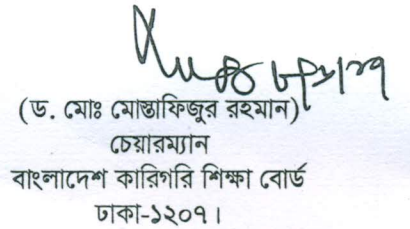 (ড. মোঃ মোস্তাফিজুর রহমান)
চেয়ারম্যান
বাংলাদেশ কারিগরি শিক্ষা বোর্ড
ঢাকা-১২০৭।